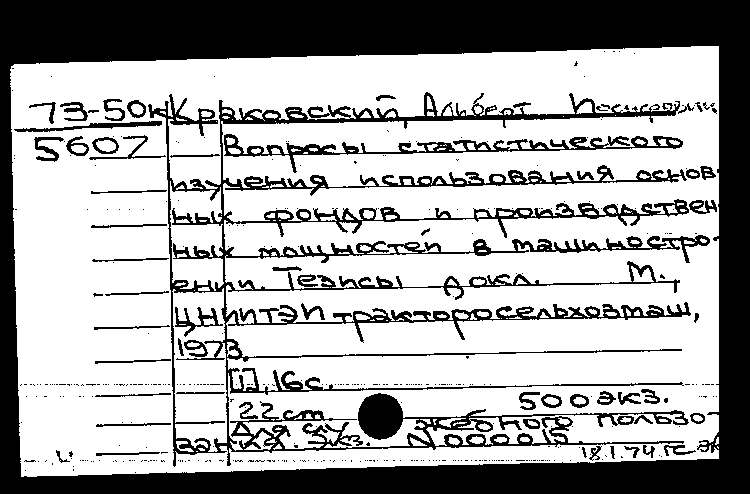 73-50к Краковский, Альберт Иосифович
5607 Вопросы статистического
изучения использования основ-
ных фондов и производствен-
ных мощностей в машиностро-
ении. Тезисы докл. М.,
ЦНИИТЭИтракторосельхозмаш,
1973.
[1], 16с.
22 cm. 500 экз.
Для служебного пользо-
вания. Экз. N000015.
18.1.74 гс эк